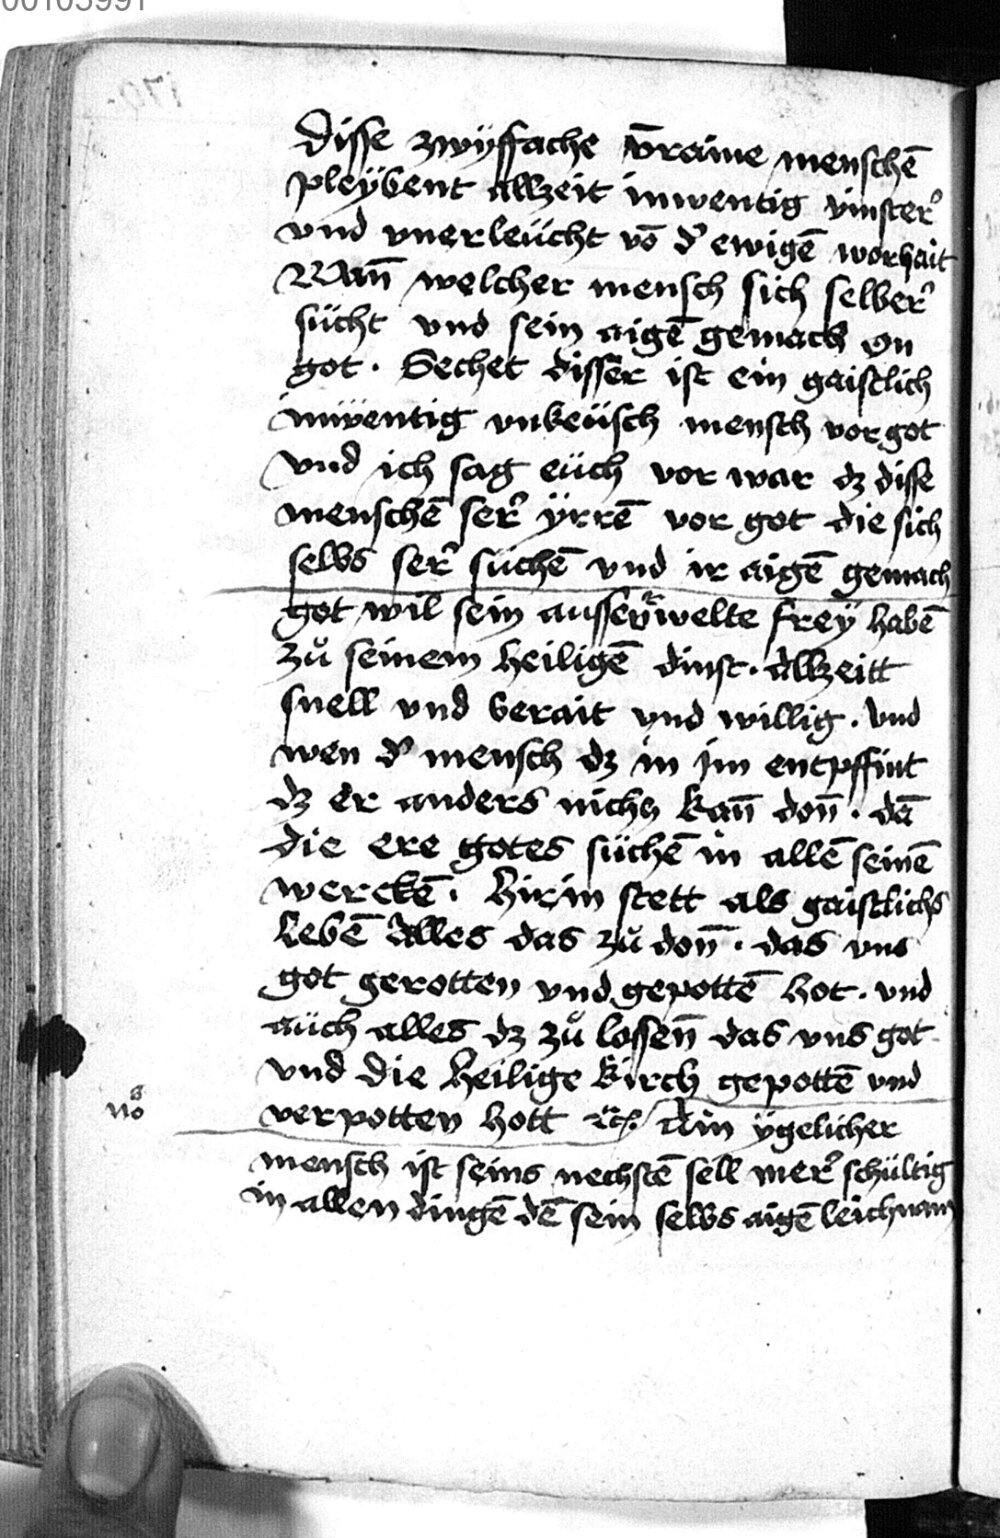 Disse zwÿffache vn̄raine menschē
pleÿbent allzeit inwentig vinster᷑
vnd vnerleücht vō d᷑ ewigē worhait
Wan̄ welcher mensch sich selber᷑
sücht vnd sein aigē gemach on
got . Sechet disser ist ein gaistlich
inwentig vnkeüsch mensch vor got
vnd ich sag eüch vor war dz disse
menschē ser᷑ ÿrrē vor got die sich
selbs ser᷑ süchē vnd ir aigē gemach
got wil sein ausserwelte freÿ habē
zů seinem heiligē dinst . allzeitt
snell vnd berait vnd willig . vnd
wen d᷑ mensch dz in jm entpffint
dz er anders nichs kan̄ don̄ . dā
die ere gotes süchē in allē seinē
werckē . Hirin stett als gaistlichs
lebē Alles das zů don̄ . das vns
got gerotten vnd gepottē hot . vnd
aüch alles dz zů lossen̄ das vns got
vnd die heilige kirch gepottē vnd
verpotten hott ⁊c̄ Ain ÿgelicher
mensch ist seins nechstē sell mer᷑ schültig
in allen dingē dē sein selbs aigē leichnam